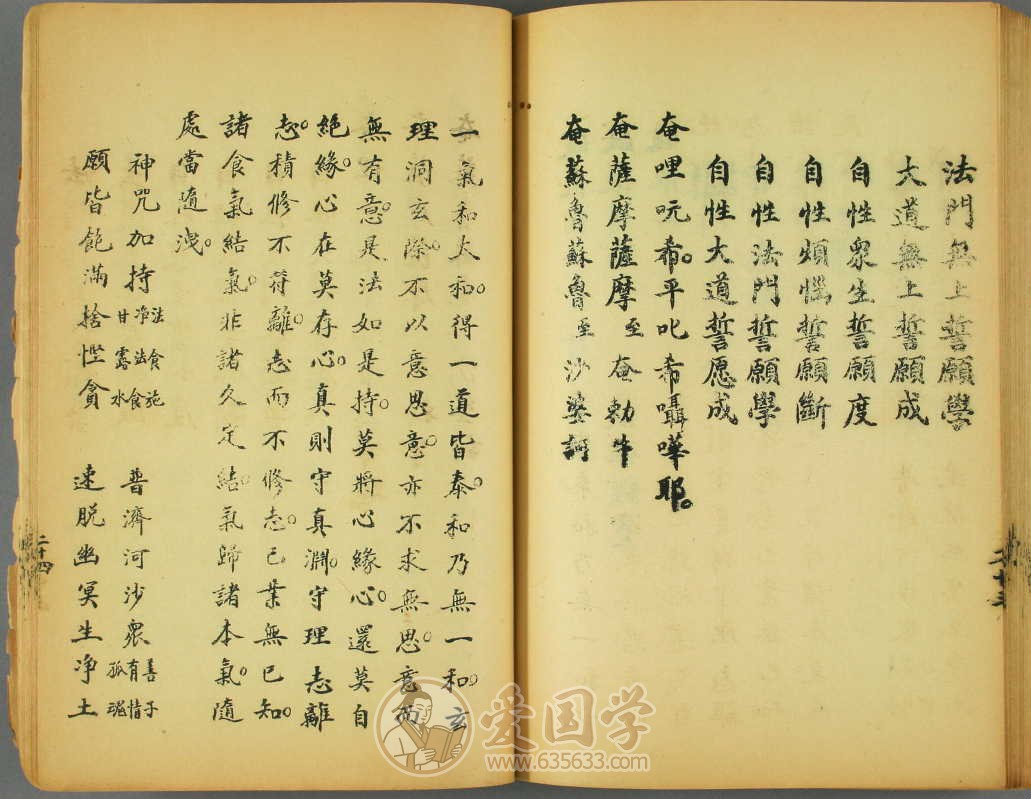 法門無上誓願學
大道無上誓願成
自性眾生誓願度
自性煩惱誓願斷
自性法門誓願學
自性大道誓愿成
奄哩吭希。平叱希囁嘩耶。
奄薩摩薩摩至奄勅牛
奄蘇魯蘇魯至沙婆訶
二十三
一氣和太和。得一道皆泰。和乃無一和。玄
理洞玄除。不以意思意。亦不求無思。意而
無有意。是法如是持。莫將心緣心。還莫自
絕緣。心在莫存心。真則守真淵。守理志離
志。積修不符離。志而不修志。己業無已知。
諸食氣結氣。非諸久定結。氣歸諸本氣。隨
處當隨洩。
神咒加持法食施 淨法食 甘露水 普濟河沙眾善子 有情 孤魂
願皆飽滿捨慳貪 速脫幽冥生净土
二十四
爱国学
www.635633.com